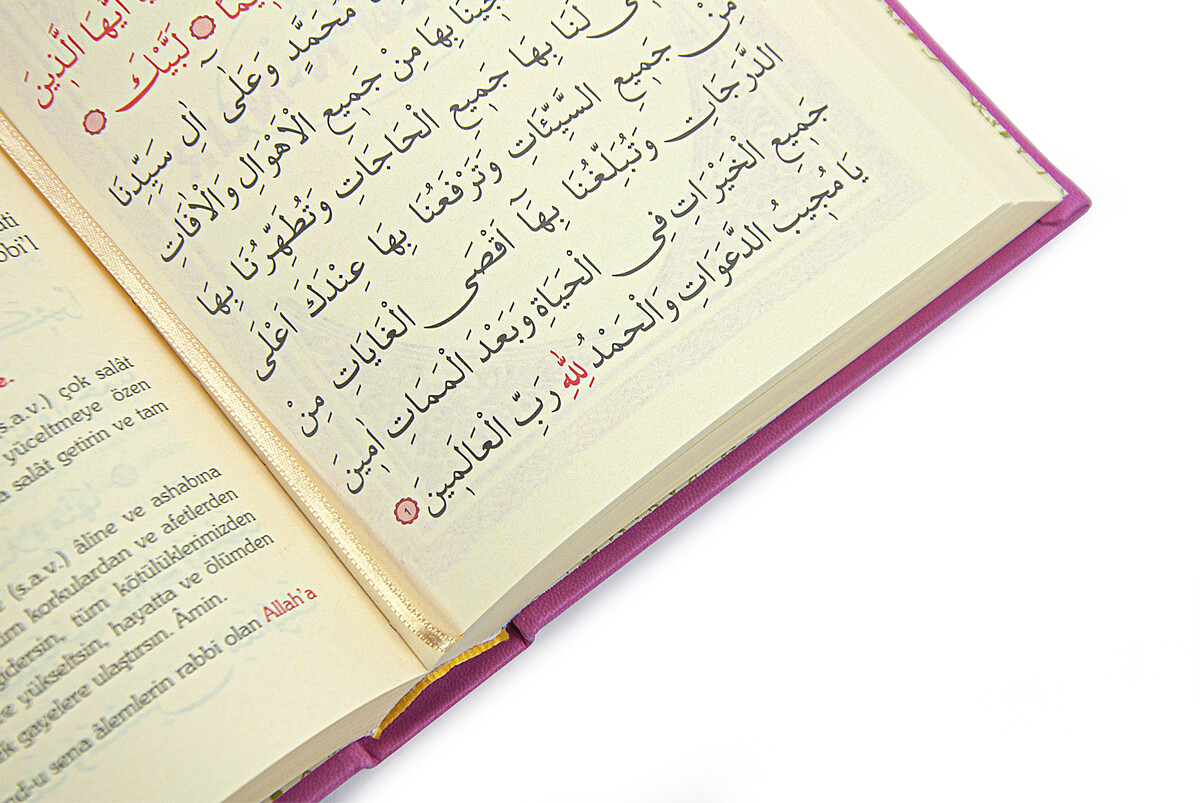 اَيُّهَا الَّذِينَ
لَبَّيْكَ
مُحَمَّدٍ وَعَلٰٓى اٰلِ سَيِّدِنَا
بِهَا مِنْ جَمِيعِ الْاَهْوَالِ وَالْاٰفَاتِ
لَنَا بِهَا جَمِيعِ الْحَاجَاتِ وَتُطَهِّرُنَا بِهَا
مِنْ جَمِيعِ السَّيِّئَاتِ وَتَرْفَعُنَا بِهَا عِنْدَكَ اَعْلَى
الدَّرَجَاتِ وَتُبَلِّغُنَا بِهَٓا اَقْصَى الْغَايَاتِ مِنْ
جَمِيعِ الْخَيْرَاتِ فِى الْحَيَاةِ وَبَعْدَ الْمَمَاتِ اٰمِينَ
يَا مُجِيبُ الدَّعَوَاتِ وَالْحَمْدُ لِلّٰهِ رَبِّ الْعَالَمِينَ
1
(s.a.v.) çok salât
yüceltmeye özen
salât getirin ve tam
(s.a.v.) âline ve ashabına
korkulardan ve afetlerden
gidersin, tüm kötülüklerimizden
yükseltsin, hayatta ve ölümden
gayelere ulaştırsın. Âmin.
sena âlemlerin rabbi olan Allah'a